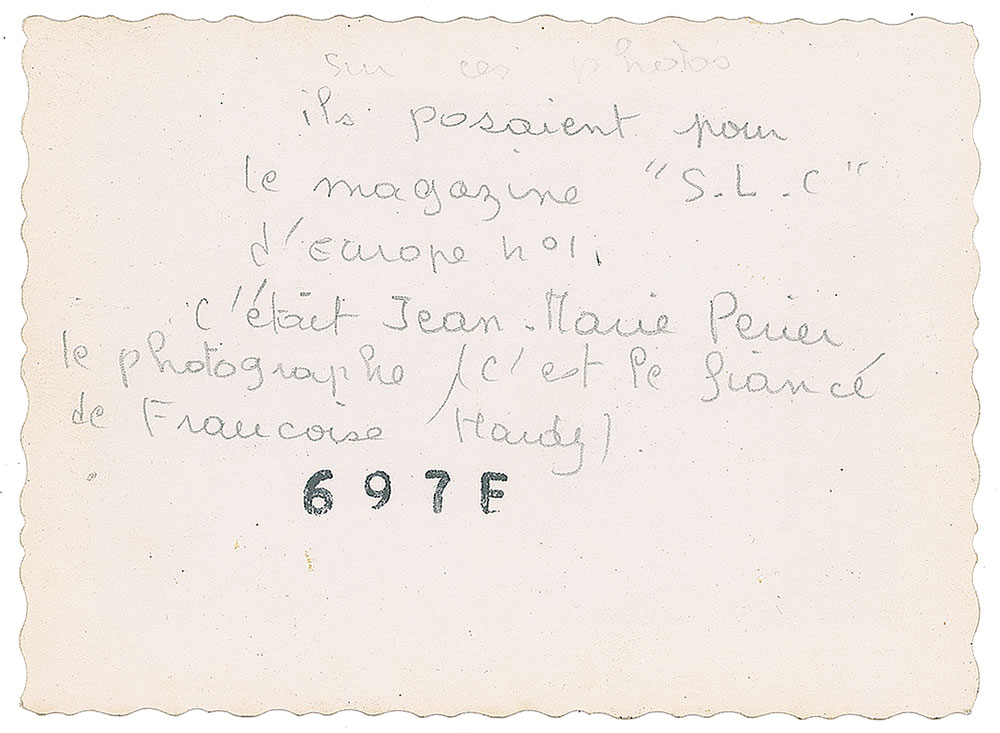 sur ces photos
ils posaient pour
le magazine "S.L.C"
d'europe n°1.
c'était Jean-Marie Perier
le photographe (c'est le fiancé
de Francoise Hardy)
697F